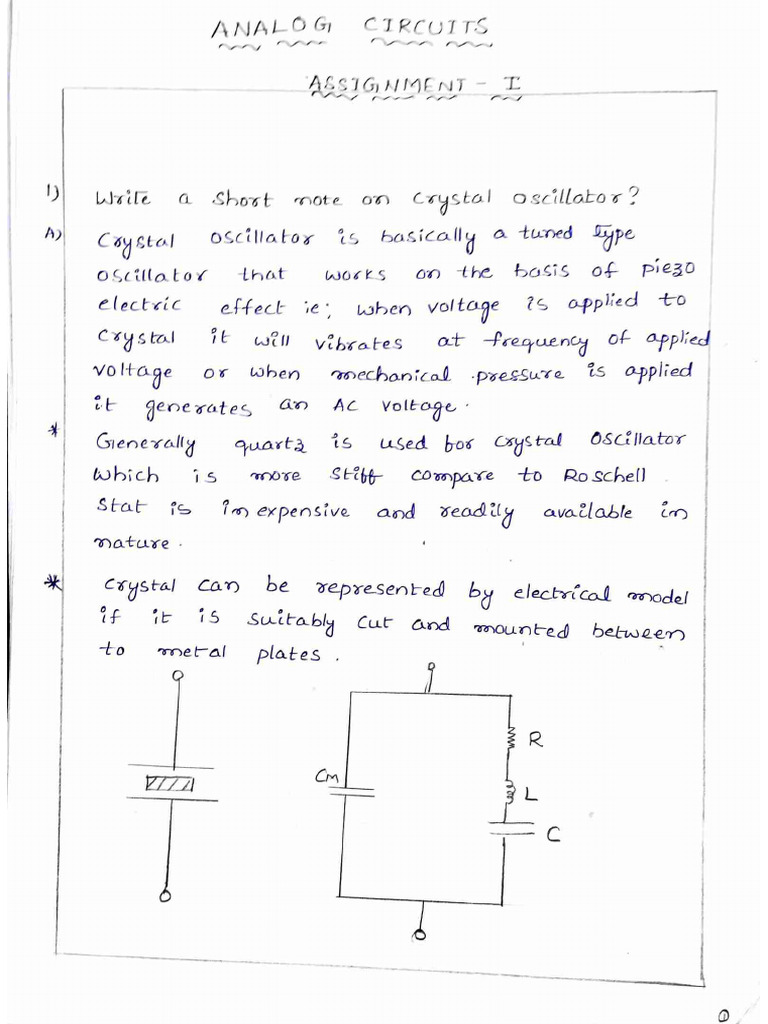 ANALOG CIRCUITS
ASSIGNMENT - I
1) Write a short note on crystal oscillator?
A) Crystal oscillator is basically a tuned type
oscillator that works on the basis of piezo
electric effect ie; when voltage is applied to
crystal it will vibrates at frequency of applied
voltage or when mechanical pressure is applied
it generates an AC voltage.
* Generally quartz is used for crystal oscillator
which is more stiff compare to Roschell
Stat is in expensive and readily available in
nature.
* Crystal can be represented by electrical model
if it is suitably cut and mounted between
to metal plates.
R
CM
L
C
1